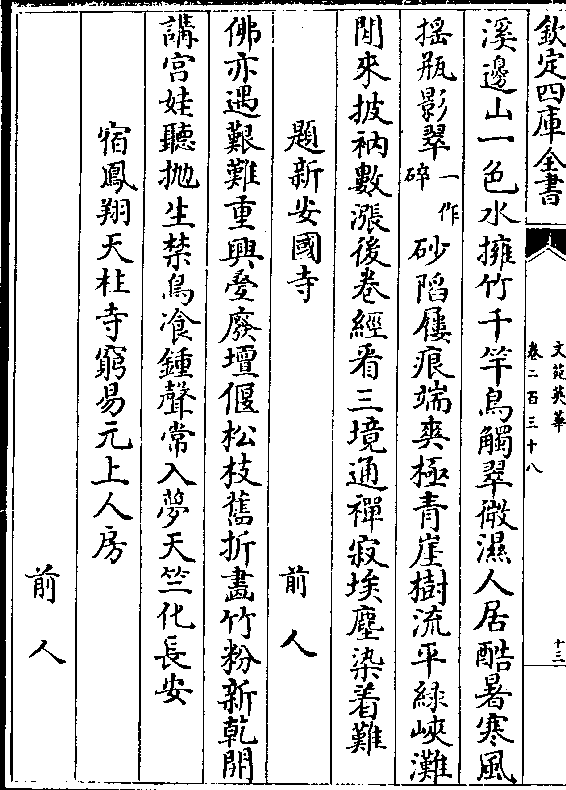 欽定四庫全書
文苑英華
卷二百三十八
十三
溪邊山一色水擁竹千竿鳥觸翠微濕人居酷暑寒風
揺瓶影翠一作碎砂陷屨痕端爽極青崖樹流平緑峽灘
閒來披衲數漲後卷經看三境通禪寂埃塵染着難
題新安國寺　前人
佛亦遇艱難重興叠廢壇偃松枝舊折畫竹粉新乾開
講宫娃聽抛生禁鳥飡鍾聲常入夢天竺化長安
宿鳳翔天柱寺窮易元上人房
前人